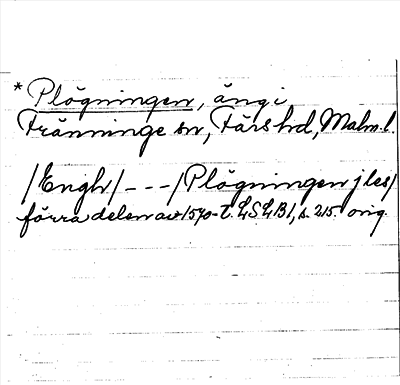 * Plögningen, äng i
Tranninge sn, Färs hd, Malm. l.
/Engh/ - - - /Plögningen jles/
förra delen av 1570-t. LSLB 1, s. 215. orig.